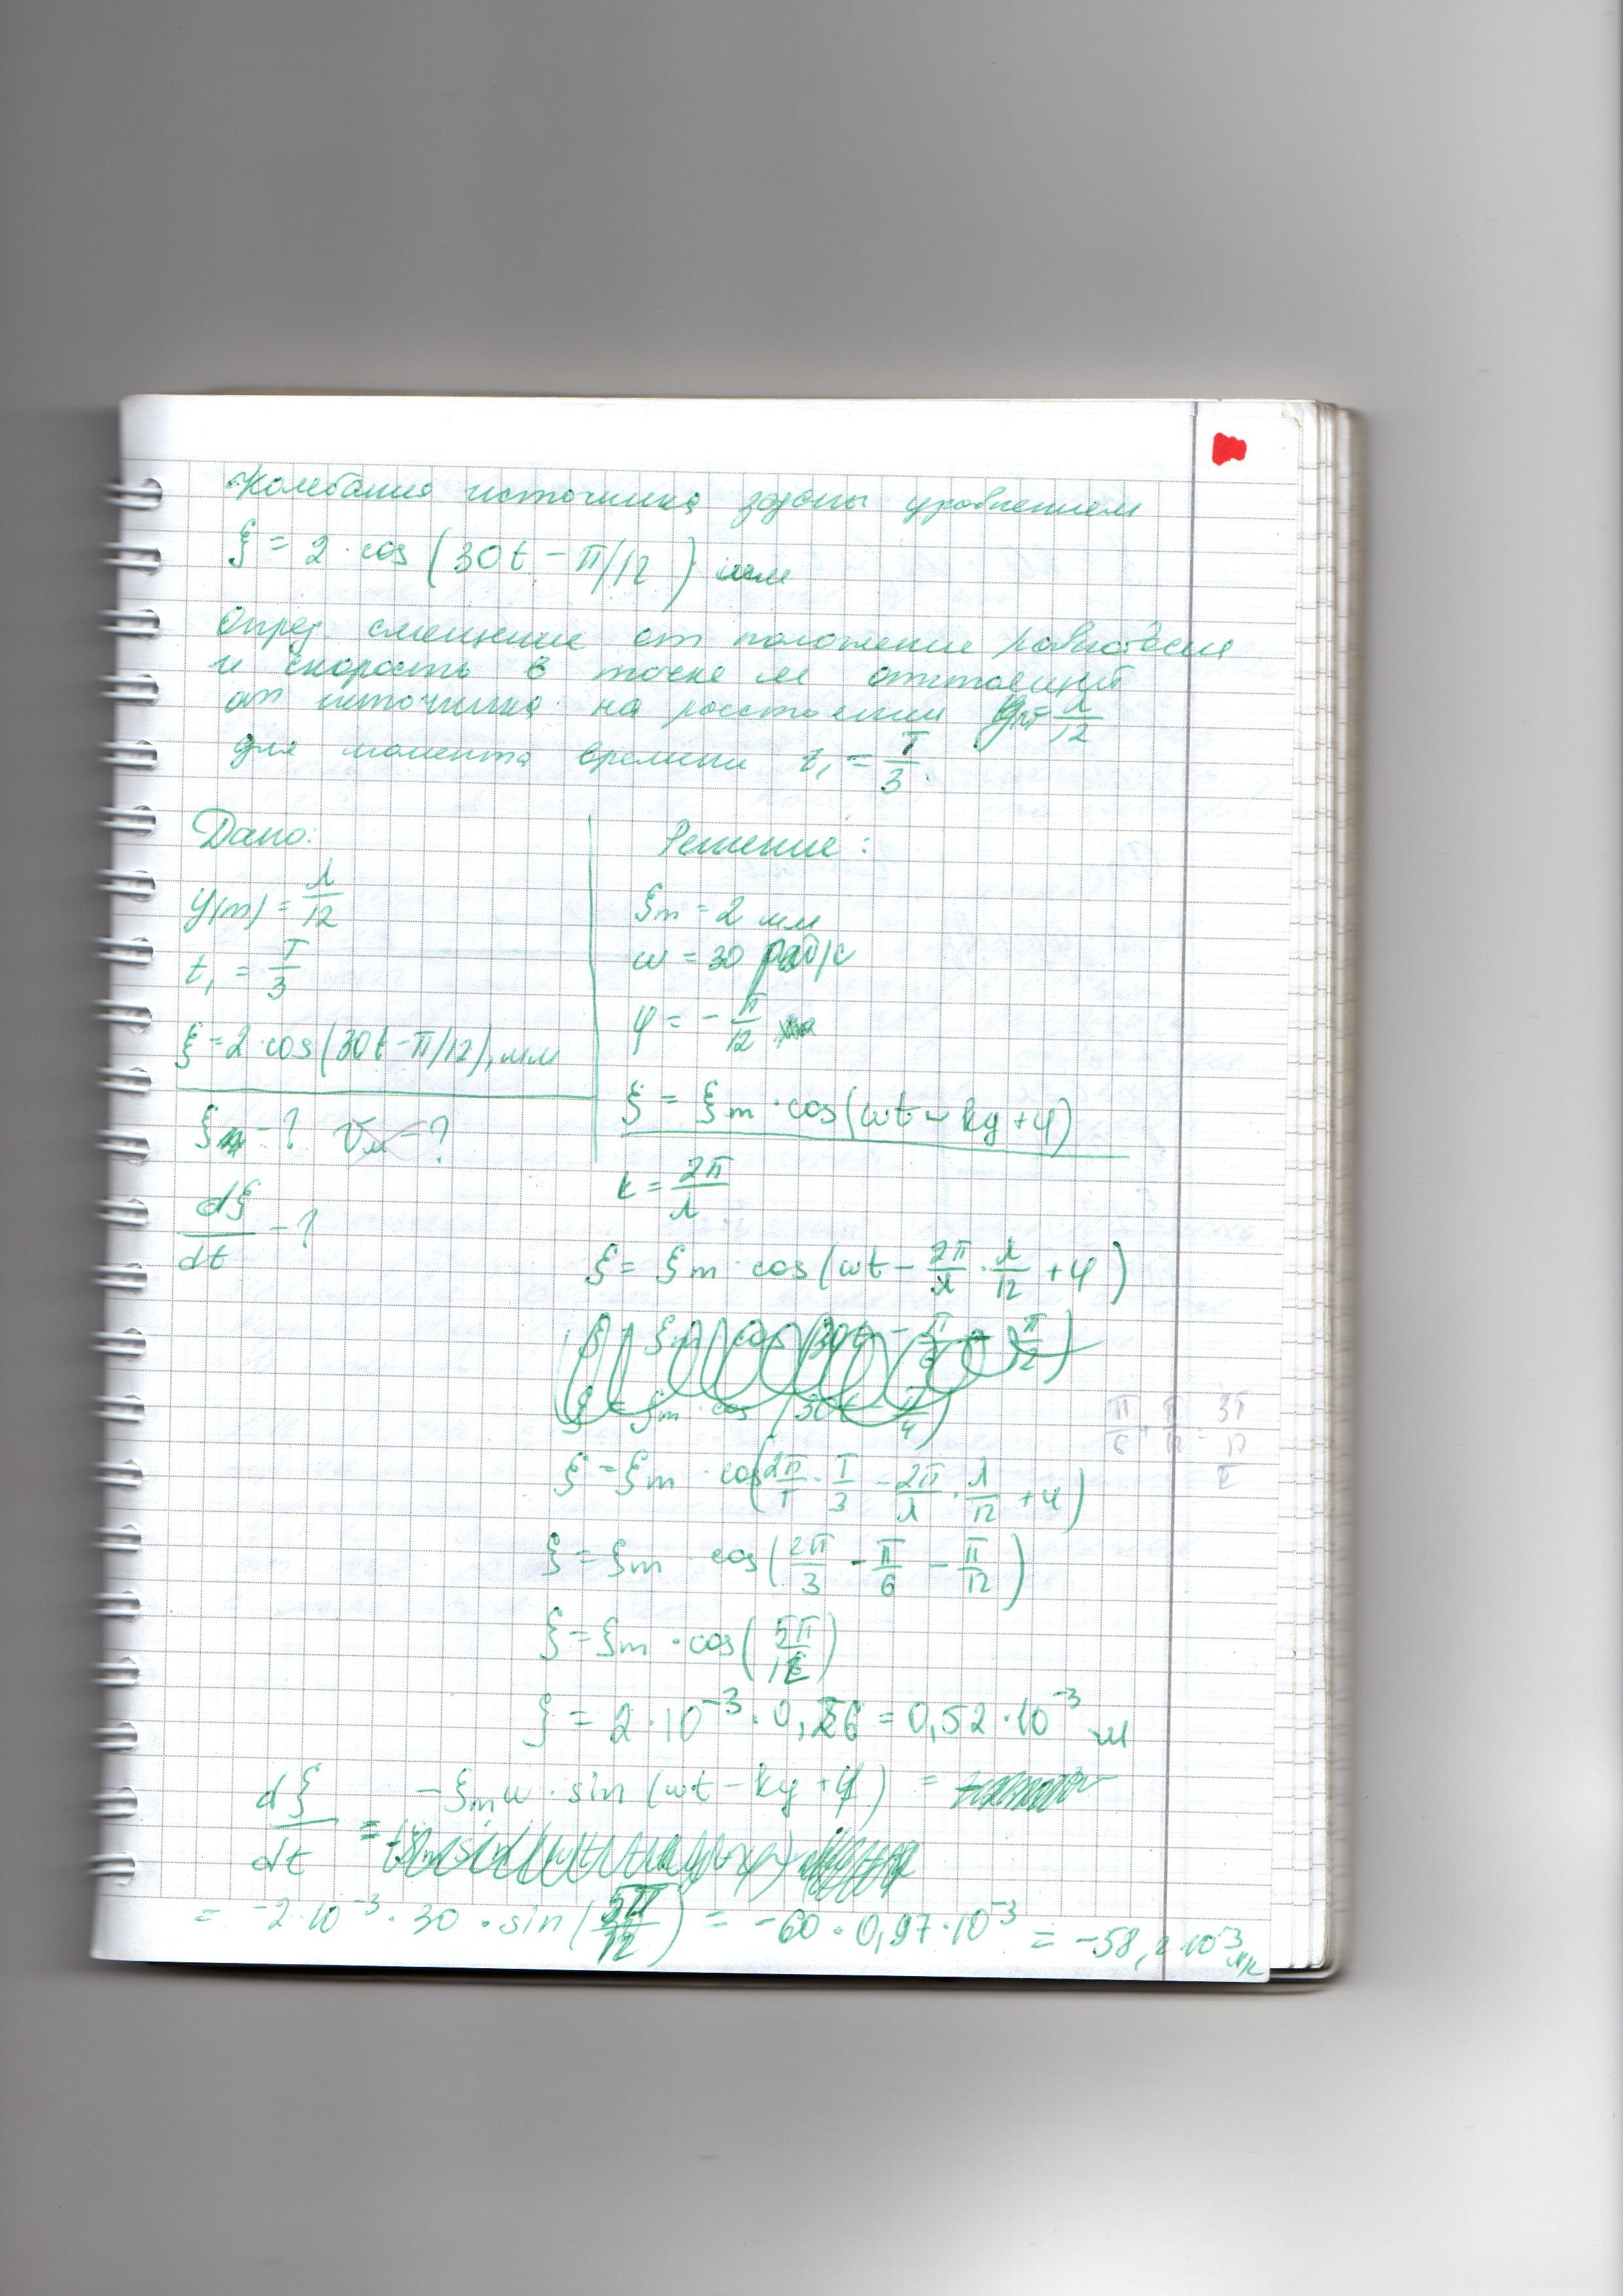 Колебания источника заданы уравнением
ξ = 2 · cos (30t − π/12) мм
Опред. смещение от положения равновесия
и скорость в точке м отстоящей
от источника на расстоянии yₘ = λ/12
для момента времени t₁ = T/3.
Дано:
y(m) = λ/12
t₁ = T/3
ξ = 2 · cos(30t − π/12), мм
ξ − ? vₘ − ?
dξ/dt − ?
Решение:
ξm = 2 мм
ω = 30 рад/с
φ = − π/12
ξ = ξm · cos(ωt − ky + φ)
k = 2π/λ
ξ = ξm · cos(ωt − 2π/λ · λ/12 + φ)
ξ = ξm · cos (30t − π/4)
ξ = ξm · cos(2π/T · T/3 − 2π/λ · λ/12 + φ)
ξ = ξm · cos(2π/3 − π/6 − π/12)
ξ = ξm · cos(5π/12)
ξ = 2 · 10⁻³ · 0,26 = 0,52 · 10⁻³ м
dξ/dt = −ξm ω · sin (ωt − ky + φ) =
= −2 · 10⁻³ · 30 · sin(5π/12) = −60 · 0,97 · 10⁻³ = −58,2 · 10⁻³ м/с